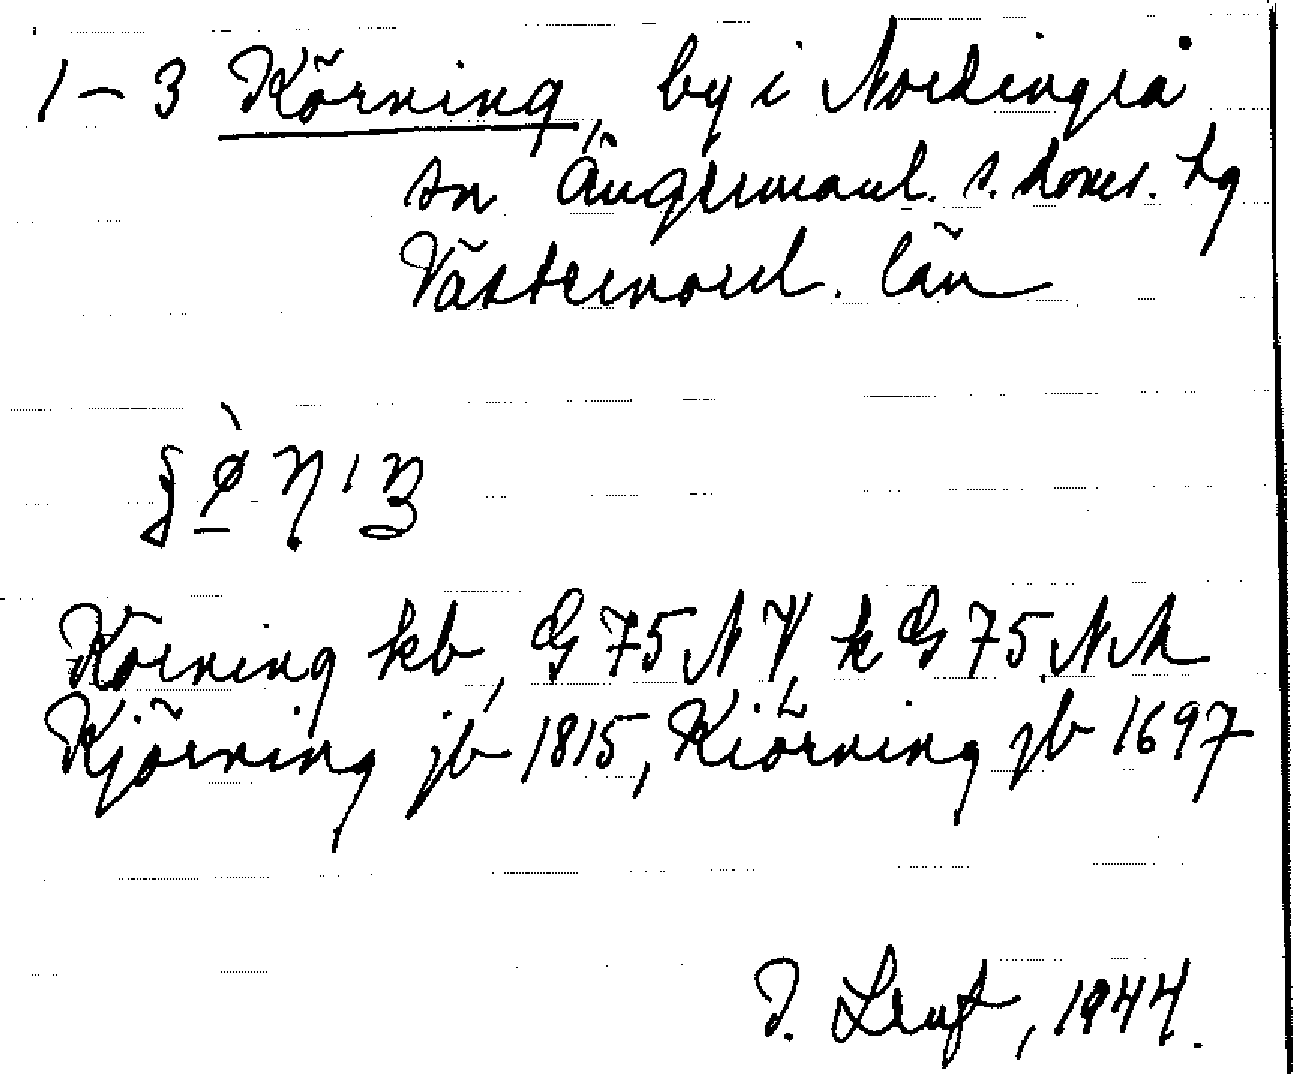 1–3 Körning, by i Nordingrå
sn Ångermanl. s. doms. hg
Västernorrl. län
Körning kb, G 75 NV, k G 75 NV
Kjörning jb 1815, Kiörning jb 1697
1944.